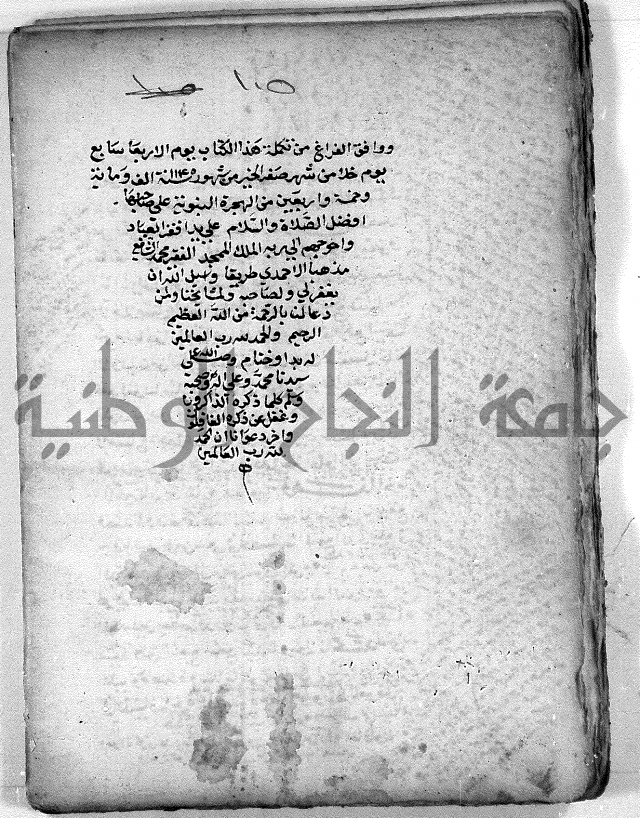 ووافق الفراغ من تكملة هذا الكتاب يوم الاربعا سابع
يوم خلا من شهر صفر الخير من شهور سنة الف وماية
وخمسة واربعين من الهجرة النبوية على صاحبها
افضل الصلاة والسلام على يد افقر العباد
واحوجهم الى ربه الملك الممجد الفقير محمد الشافعي
مذهبا الاحمدي طريقا ونسال الله ان
يغفر لي ولصاحبه ولمشايخنا ولمن
دعا لنا بالرحمة من الله العظيم
الرحيم والحمد لله رب العالمين
له بدا وختام وصلى الله على
سيدنا محمد وعلى اله وصحبه
وسلم كلما ذكره الذاكرون
وغفل عن ذكره الغافلون
واخر دعوانا ان الحمد
لله رب العالمين
جامعة النجاح الوطنية